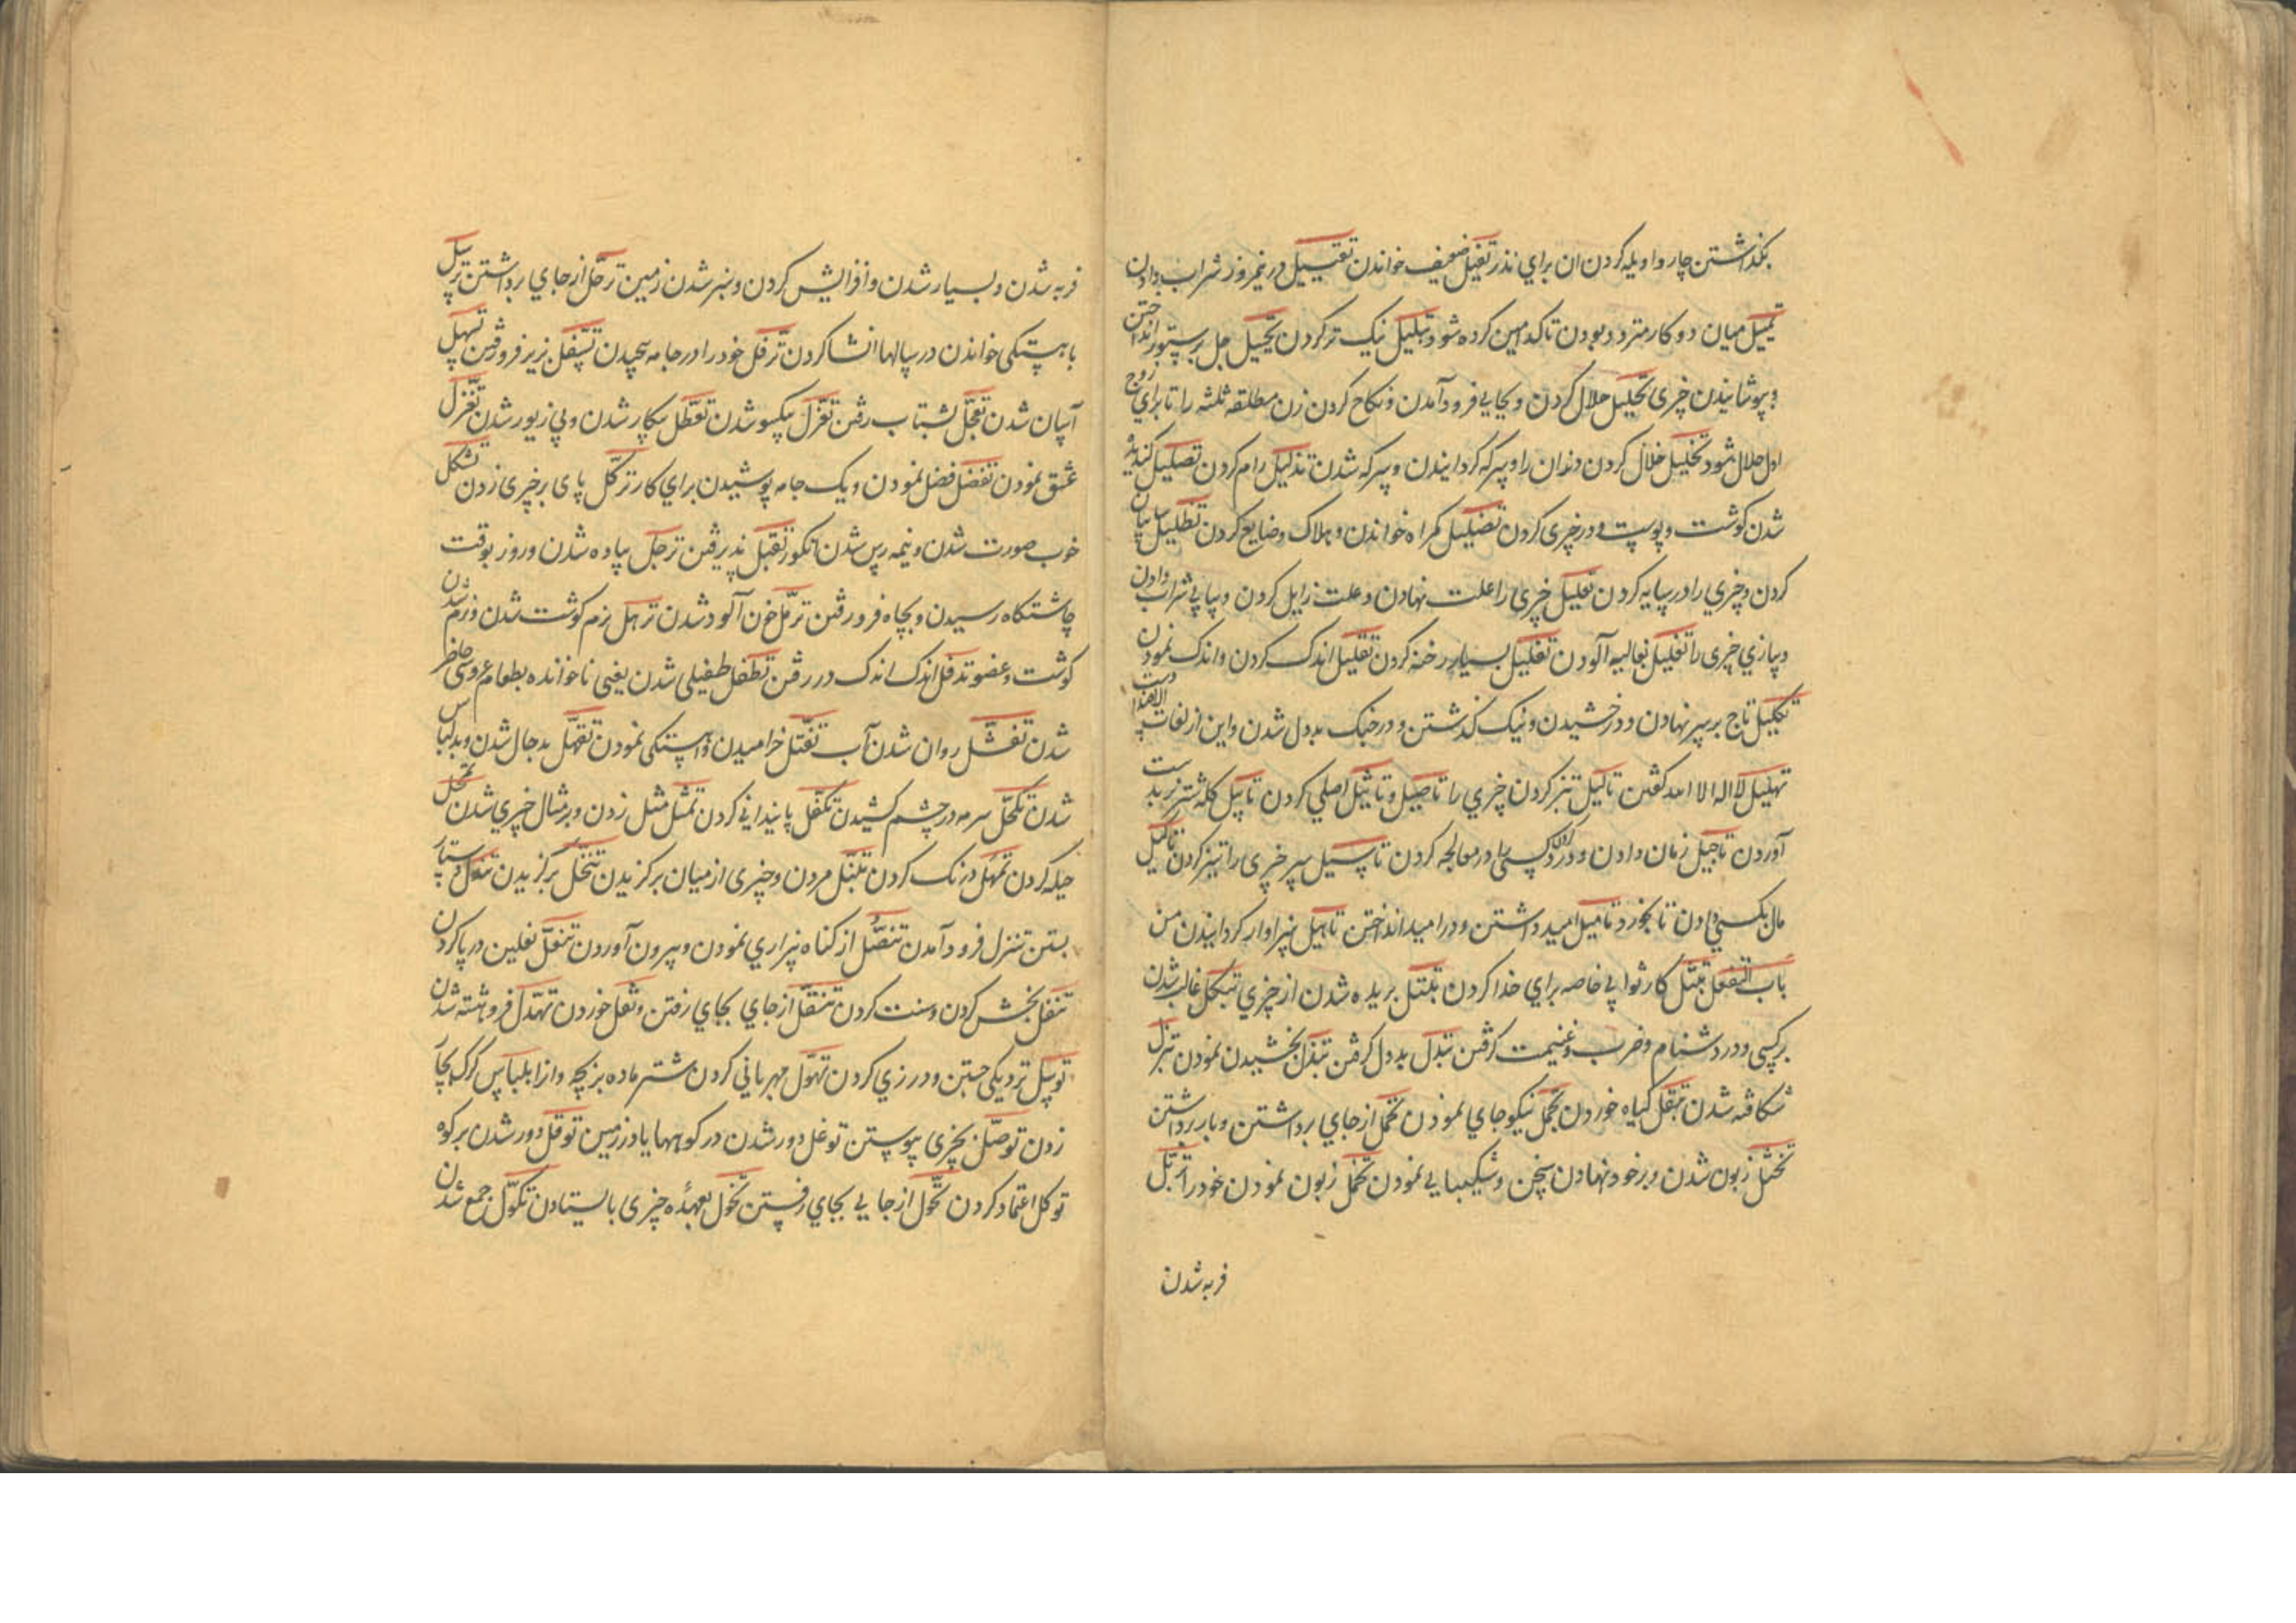 بکذاشتن چاروا و یله کردن ان برای نذر تفییل ضعیف خواندن تقییل در نیمروز شراب دادن
تمییل میان دو کار متردد بودن تا کدامین کرده شود تبلیل نیک تر کردن تجلیل جل بر ستور انداختن
و پوشانیدن چیزی تحلیل حلال کردن و بجایی فرود آمدن و نکاح کردن زن مطلقه ثلثه را تا برای زوج
اول حلال شود تخلیل خلال کردن دندان را و سرکه کردانیدن و سرکه شدن تذلیل رام کردن تصلیل کندیده
شدن کوشت و پوست و در چیزی کردن تضلیل کمراه خواندن و هلاک و ضایع کردن تظلیل سایبان
کردن و چیزی را در سایه کردن تعلیل چیزی را علت نهادن و علت زایل کردن و پیاپی شراب دادن
و بازی چیزی را تغلیل بغالیه آلودن تفلیل بسیار رخنه کردن تقلیل اندک کردن و اندک نمودن
تکلیل تاج بر سر نهادن و درخشیدن و نیک کذشتن و در جنک بددل شدن و این از لغات الاضداد است
تهلیل لا اله الا الله کفتن تالیل تیز کردن چیزی را تاصیل و تاثیل اصلی کردن تابیل کله شتر بدست
آوردن تاجیل زمان دادن و درد کردن کسی را و معالجه کردن تاسیل سر چیزی را تیز کردن تاکیل
مال بکسی دادن تا بخورد تامیل امید داشتن و در امید انداختن تاهیل سزاوار کردانیدن من
باب التفعل تبتل کار ثوابی خاصه برای خدا کردن تبتل بریده شدن از چیزی تبکل غالب شدن
بر کسی و در دشنام و ضرب و غنیمت کرفتن تبدل بدل کرفتن تبذل بخشیدن نمودن تبزل
شکافته شدن تبقل کیاه خوردن تجمل نیکو جای نمودن تحمل از جای برداشتن و بار برداشتن
تختل زبون شدن و بر خود نهادن سخن و شکیبایی نمودن تخمل زبون نمودن خود را تربل
فربه شدن
فربه شدن و بسیار شدن و افزایش کردن و سبز شدن زمین ترحل از جای برداشتن ترسل
باهستکی خواندن و رسالها انشا کردن ترفل خود را در جامه پیچیدن تسفل بزیر فرو رفتن تسهل
آسان شدن تعجل بشتاب رفتن تعزل یکسو شدن تعطل بیکار شدن و بی زیور شدن تغزل
عشق نمودن تفضل فضل نمودن و یک جامه پوشیدن برای کار ترکل پای بر چیزی زدن تشکل
خوب صورت شدن و نیمه رس شدن انکور تقبل پذیرفتن ترجل پیاده شدن و روز بوقت
چاشتکاه رسیدن و بچاه فرو رفتن ترمل خون آلود شدن ترهل نرم کوشت شدن و نرم شدن
کوشت و عضو تدفل اندک اندک در رفتن تطفل طفیلی شدن یعنی ناخوانده بطعام عروسی حاضر
شدن تغسل روان شدن آب تفتل خرامیدن و آهستکی نمودن تقهل بد حال شدن و بد لباس
شدن تکحل سرمه در چشم کشیدن تکفل پایندانی کردن تمثل مثل زدن و بر مثال چیزی شدن تمحل
حیله کردن تمهل درنک کردن تنبل مردن و چیزی از میان برکزیدن تنخل برکزیدن دستار
بستن تنزل فرود آمدن تنصل از کناه بیزاری نمودن و بیرون آوردن تنعل نعلین در پا کردن
تنفل بخشش کردن و سنت کردن تنقل از جای بجای رفتن و نقل خوردن تهدل فروهشته شدن
توسل نزدیکی جستن و دزدی کردن تهول مهربانی کردن شتر ماده بر بچه و او را بلباس کرک بجا
زدن توصل بچیزی پیوستن توغل دور شدن در کوهها یا در زمین توقل دور شدن بر کوه
توکل اعتماد کردن تحول از جایی بجای رفتن تخول بعهده چیزی بایستادن تکول جمع شدن